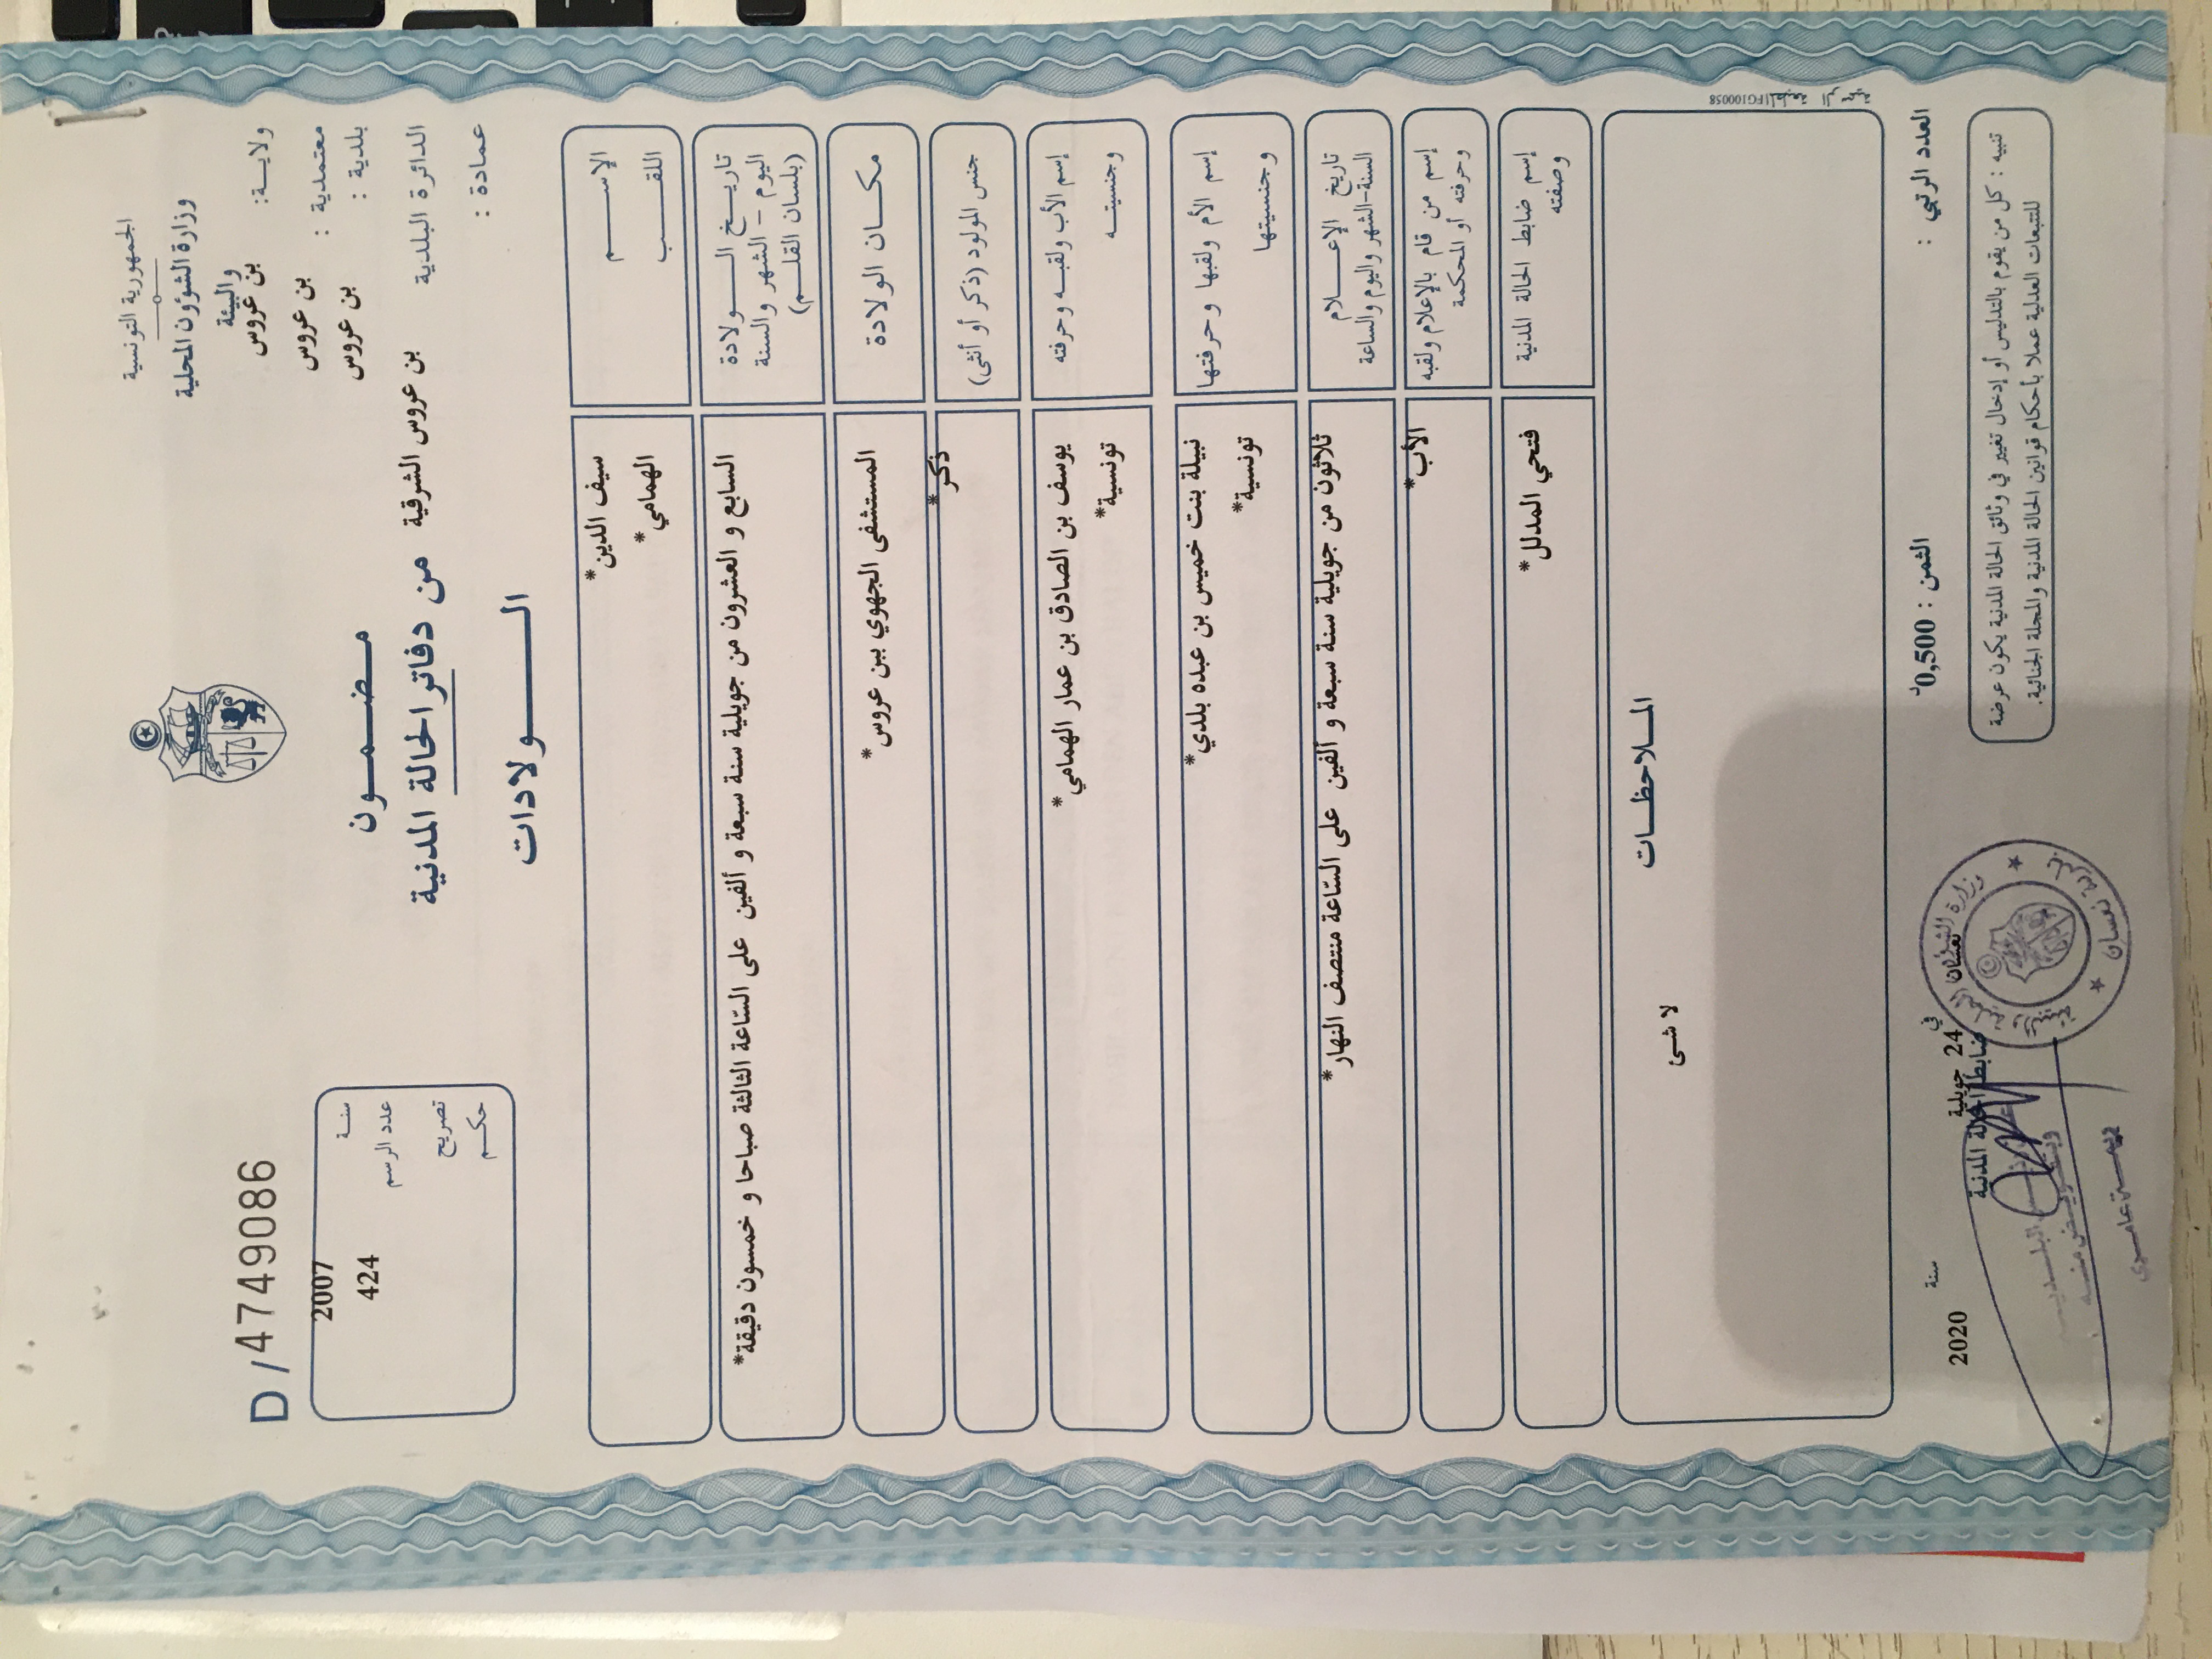 الجمهورية التونسية
وزارة الشؤون المحلية
والبيئة
ولاية: بن عروس
معتمدية : بن عروس
بلدية : بن عروس
الدائرة البلدية بن عروس الشرقية
عمادة :
D / 4749086
سنة 2007
عدد الرسم 424
تصريح
حكم
مضمون
من دفاتر الحالة المدنية
الولادات
الإسم سيف الدين*
اللقب الهمامي*
تاريخ الولادة
اليوم - الشهر والسنة
(بلسان القلم)
السابع و العشرون من جويلية سنة سبعة و ألفين على الساعة الثالثة صباحا و خمسون دقيقة*
مكان الولادة المستشفى الجهوي ببن عروس*
جنس المولود (ذكر أو أنثى) ذكر*
إسم الأب ولقبه وحرفته يوسف بن الصادق بن عمار الهمامي*
وجنسيته تونسية*
إسم الأم ولقبها وحرفتها نبيلة بنت خميس بن عبده بلدي*
وجنسيتها تونسية*
تاريخ الإعلام
السنة-الشهر واليوم والساعة
ثلاثون من جويلية سنة سبعة و ألفين على الساعة منتصف النهار*
إسم من قام بالإعلام ولقبه
وحرفته أو المحكمة
الأب*
إسم ضابط الحالة المدنية
وصفته
فتحي المدلل*
الملاحظات
لا شئ
المطبعة الرسمية FG100058
العدد الرتبي :
الثمن : 0,500د
نعسان في 24 جويلية سنة 2020
ضابط الحالة المدنية
تنبيه : كل من يقوم بالتدليس أو إدخال تغيير في وثائق الحالة المدنية يكون عرضة
للتتبعات العدلية عملا بأحكام قوانين الحالة المدنية والمجلة الجنائية.
بلدية نعسان